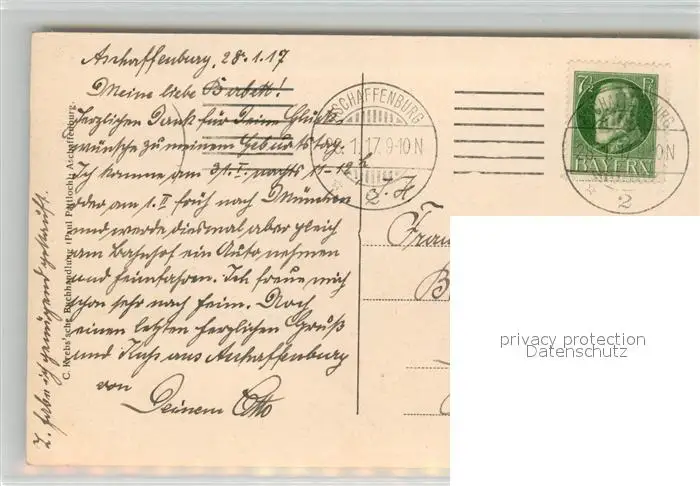 Aschaffenburg, 28.1.17
Meine liebe Babett!
Herzlichen Dank für Deine Glück-
wünsche zu meinem Geburtstag.
Ich komme am 31.I. nachts 11-12 h
oder am 1.II früh nach München
und werde diesmal aber gleich
am Bahnhof ein Auto nehmen
und heimfahren. Ich freue mich
schon sehr nach heim. Noch
einen letzten herzlichen Gruß
und Kuß aus Aschaffenburg
von
Deinem Otto
Z. habe ich genügend gekauft.
C. Krebs'sche Buchhandlung (Paul Pattloch), Aschaffenburg.
ASCHAFFENBURG
1.17. 9-10 N
2
7½ PF
BAYERN
2
I. H.
Frau
privacy protection
Datenschutz